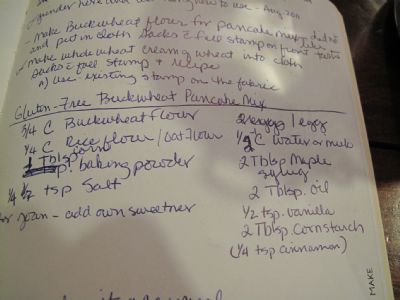 gender here and
how to use - Aug 2011
- Make Buckwheat flour for pancake mix
and put in cloth sacks & fell stamp on front
did
- Make whole wheat cream of wheat into cloth
sacks & fell stamp & recipe
a) Use existing stamp on the fabric
Gluten-Free Buckwheat Pancake Mix
3/4 C Buckwheat flour
1/4 C Rice flour / oat flour
1 Tblsp. baking powder
1/4 1/2 tsp Salt
for Joan - add own sweetner
2 eggs / 1 egg
1/2 C water or milk
2 Tblsp Maple
syrup
2 Tblsp. oil
1/2 tsp. vanilla
2 Tblsp. Cornstarch
(1/4 tsp cinnamon)
MAKE